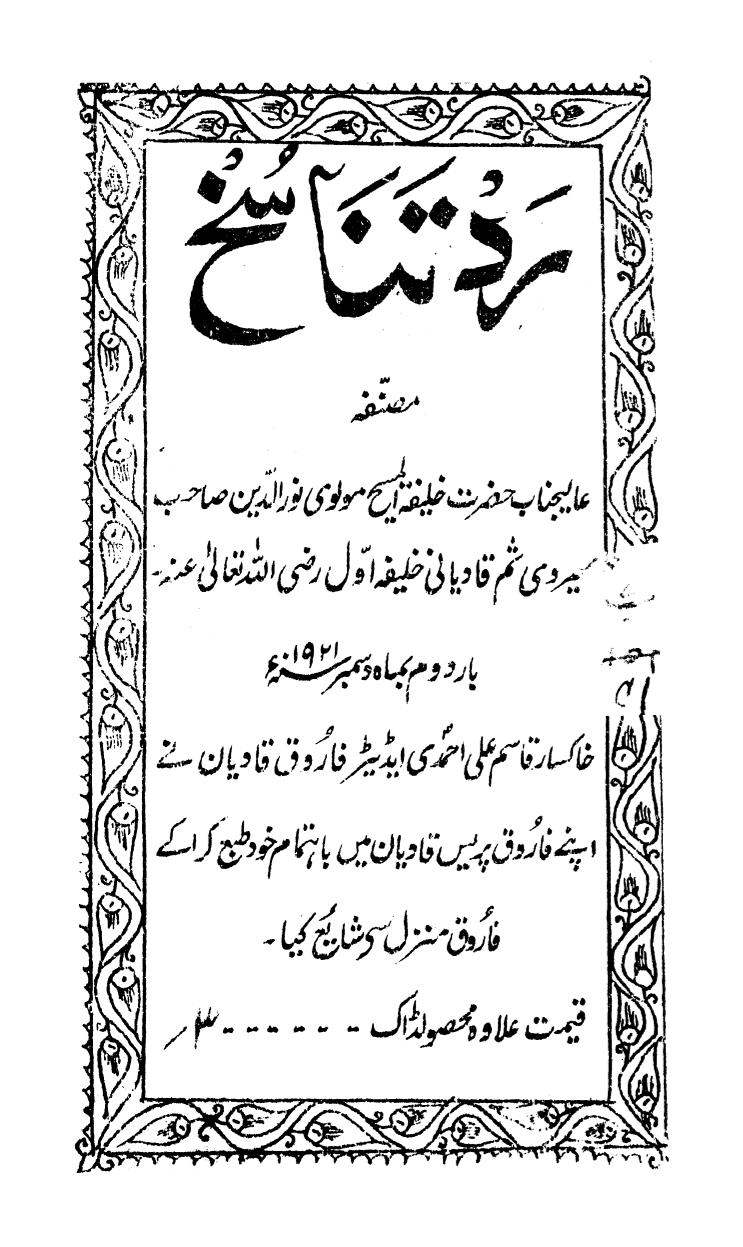 ردّ تناسُخ
مصنّفہ
عالیجناب حضرت خلیفۃ المسیح مولوی نور الدّین صاحب
بھیروی ثم قادیانی خلیفہ اوّل رضی اللہ تعالیٰ عنہ۔
بار دوم بماہ دسمبر ۱۹۲۱ء
خاکسار قاسم علی احمدی ایڈیٹر فاروق قادیان نے
اپنے فاروق پریس قادیان میں باہتمام خود طبع کرا کے
فاروق منزل سی شایع کیا۔
قیمت علاوہ محصولڈاک - - - - - -